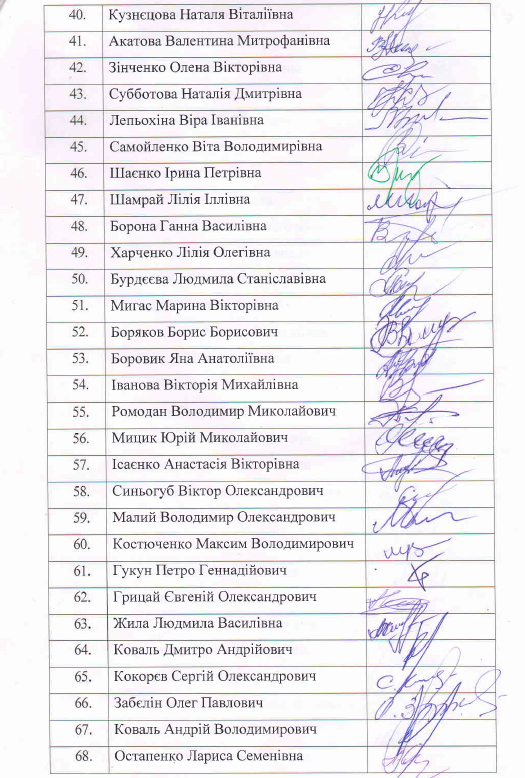 40. Кузнєцова Наталя Віталіївна
41. Акатова Валентина Митрофанівна
42. Зінченко Олена Вікторівна
43. Субботова Наталія Дмитрівна
44. Лепьохіна Віра Іванівна
45. Самойленко Віта Володимирівна
46. Шаєнко Ірина Петрівна
47. Шамрай Лілія Іллівна
48. Борона Ганна Василівна
49. Харченко Лілія Олегівна
50. Бурдєєва Людмила Станіславівна
51. Мигас Марина Вікторівна
52. Боряков Борис Борисович
53. Боровик Яна Анатоліївна
54. Іванова Вікторія Михайлівна
55. Ромодан Володимир Миколайович
56. Мицик Юрій Миколайович
57. Ісаєнко Анастасія Вікторівна
58. Синьогуб Віктор Олександрович
59. Малий Володимир Олександрович
60. Костюченко Максим Володимирович
61. Гукун Петро Геннадійович
62. Грицай Євгеній Олександрович
63. Жила Людмила Василівна
64. Коваль Дмитро Андрійович
65. Кокорєв Сергій Олександрович
66. Забєлін Олег Павлович
67. Коваль Андрій Володимирович
68. Остапенко Лариса Семенівна